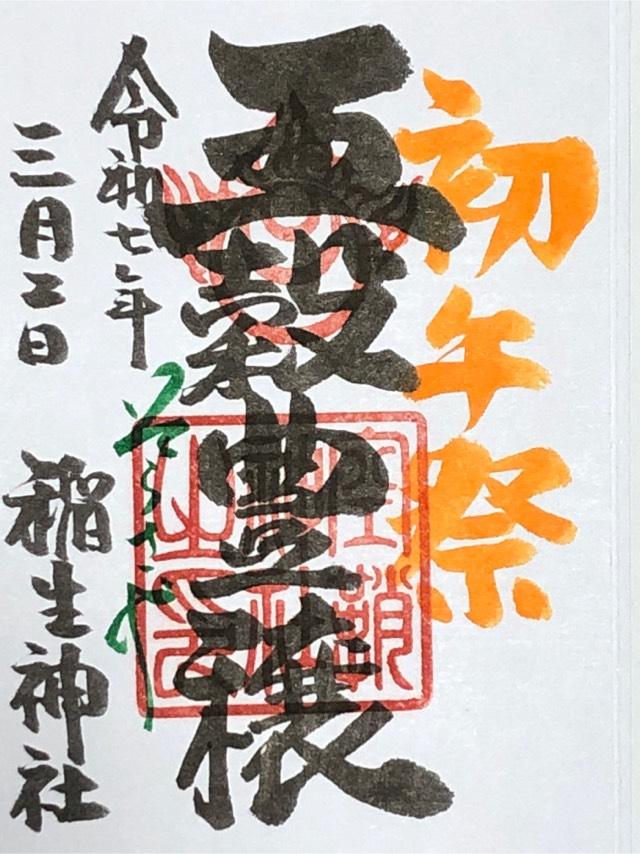 初午祭
五穀豊穣
令和七年
三月二日
稲生神社